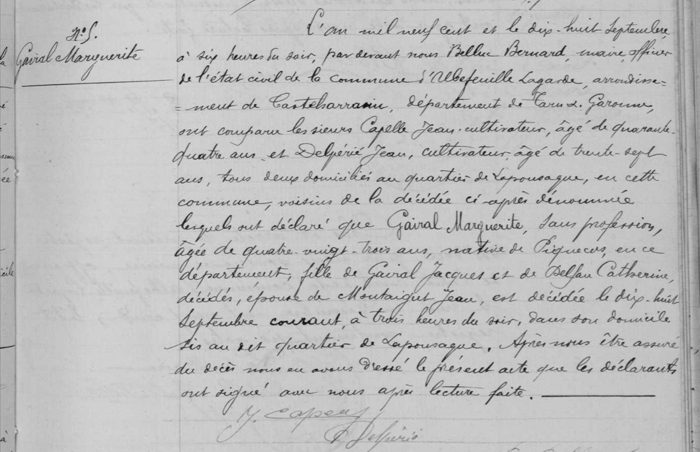 N° 5.
Gairal Marguerite
L'an mil neuf cent et le dix-huit Septembre,
à six heures du soir, par devant nous Belluc Bernard, maire, officier
de l'état civil de la commune d'Albefeuille Lagarde, arrondisse-
=ment de Castelsarrasin, département de Tarn & Garonne,
ont comparu les sieurs Capelle Jean, cultivateur, âgé de quarante-
quatre ans et Delpérié Jean, cultivateur, âgé de trente sept
ans, tous deux domiciliés au quartier de Lapousaque, en cette
commune, voisins de la décédée ci-après dénommée
lesquels ont déclaré que Gairal Marguerite, sans profession,
âgée de quatre-vingt-trois ans, native de Piquecos, en ce
département, fille de Gairal Jacques et de Catherine,
décédés, épouse de Montaigut Jean, est décédée le dix-huit
Septembre courant, à trois heures du soir, dans son domicile
sis au dit quartier de Lapousaque. Après nous être assuré
du décès nous en avons dressé le présent acte que les déclarants
ont signé avec nous après lecture faite.
Delpérié